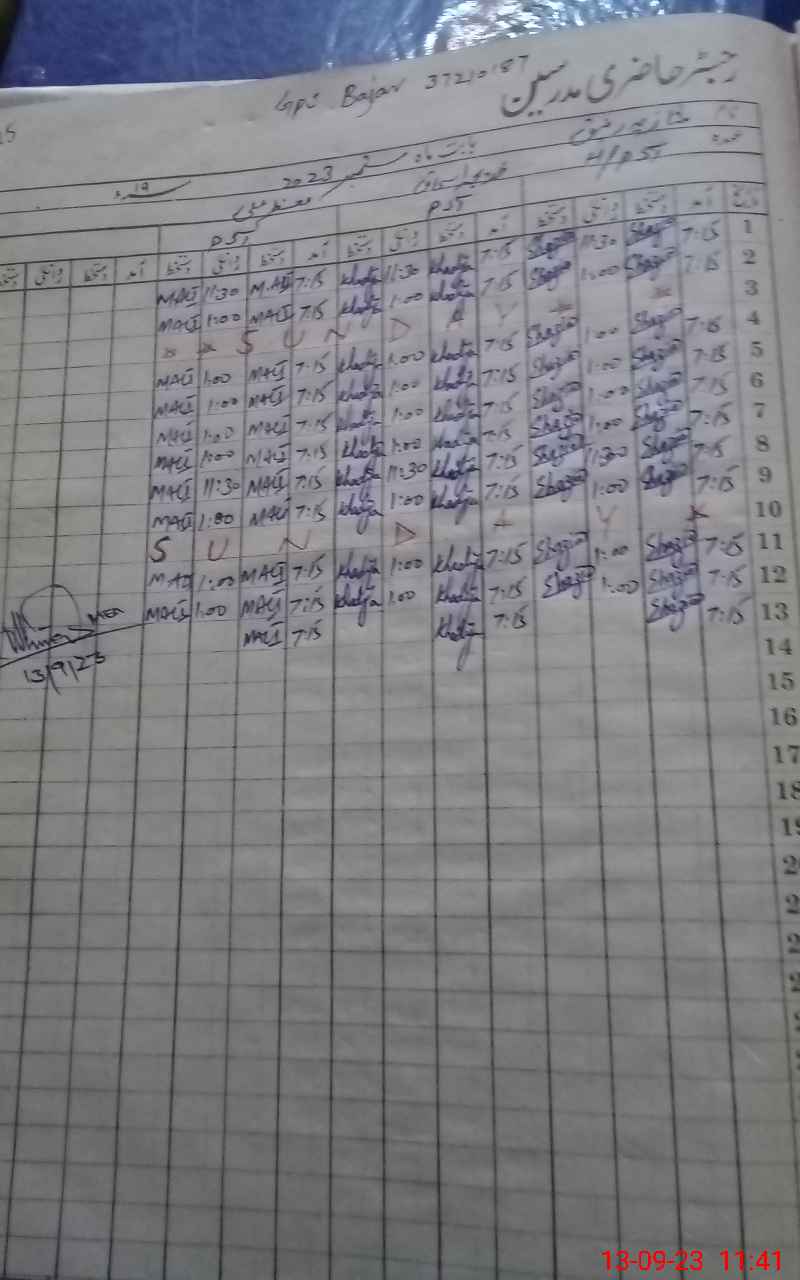 GPS Bajar 37210187
رجسٹر حاضری مدرسین
نام
بابت ماہ ستمبر 2023 سنہ 19ء
عہدہ H/PST
PST PST
تاریخ آمد دستخط روانگی دستخط آمد دستخط روانگی دستخط آمد دستخط روانگی دستخط آمد دستخط روانگی دستخط
MALI 11:30 MALI 7:15 Khadija 11:30 Khadija 7:15 Shazia 11:30 Shazia 7:15 1
MALI 1:00 MALI 7:15 Khadija 1:00 Khadija 7:15 Shazia 1:00 Shazia 7:15 2
S U N D A Y 3
MALI 1:00 MALI 7:15 Khadija 1:00 Khadija 7:15 Shazia 1:00 Shazia 7:15 4
MALI 1:00 MALI 7:15 Khadija 1:00 Khadija 7:15 Shazia 1:00 Shazia 7:15 5
MALI 1:00 MALI 7:15 Khadija 1:00 Khadija 7:15 Shazia 1:00 Shazia 7:15 6
MALI 1:00 MALI 7:15 Khadija 1:00 Khadija 7:15 Shazia 1:00 Shazia 7:15 7
MALI 11:30 MALI 7:15 Khadija 11:30 Khadija 7:15 Shazia 11:30 Shazia 7:15 8
MALI 1:00 MALI 7:15 Khadija 1:00 Khadija 7:15 Shazia 1:00 Shazia 7:15 9
S U N D A Y 10
MALI 1:00 MALI 7:15 Khadija 1:00 Khadija 7:15 Shazia 1:00 Shazia 7:15 11
MALI 1:00 MALI 7:15 Khadija 1:00 Khadija 7:15 Shazia 1:00 Shazia 7:15 12
MALI 7:15 Khadija 7:15 Shazia 7:15 13
13/9/23
14
15
16
17
18
19
13-09-23 11:41